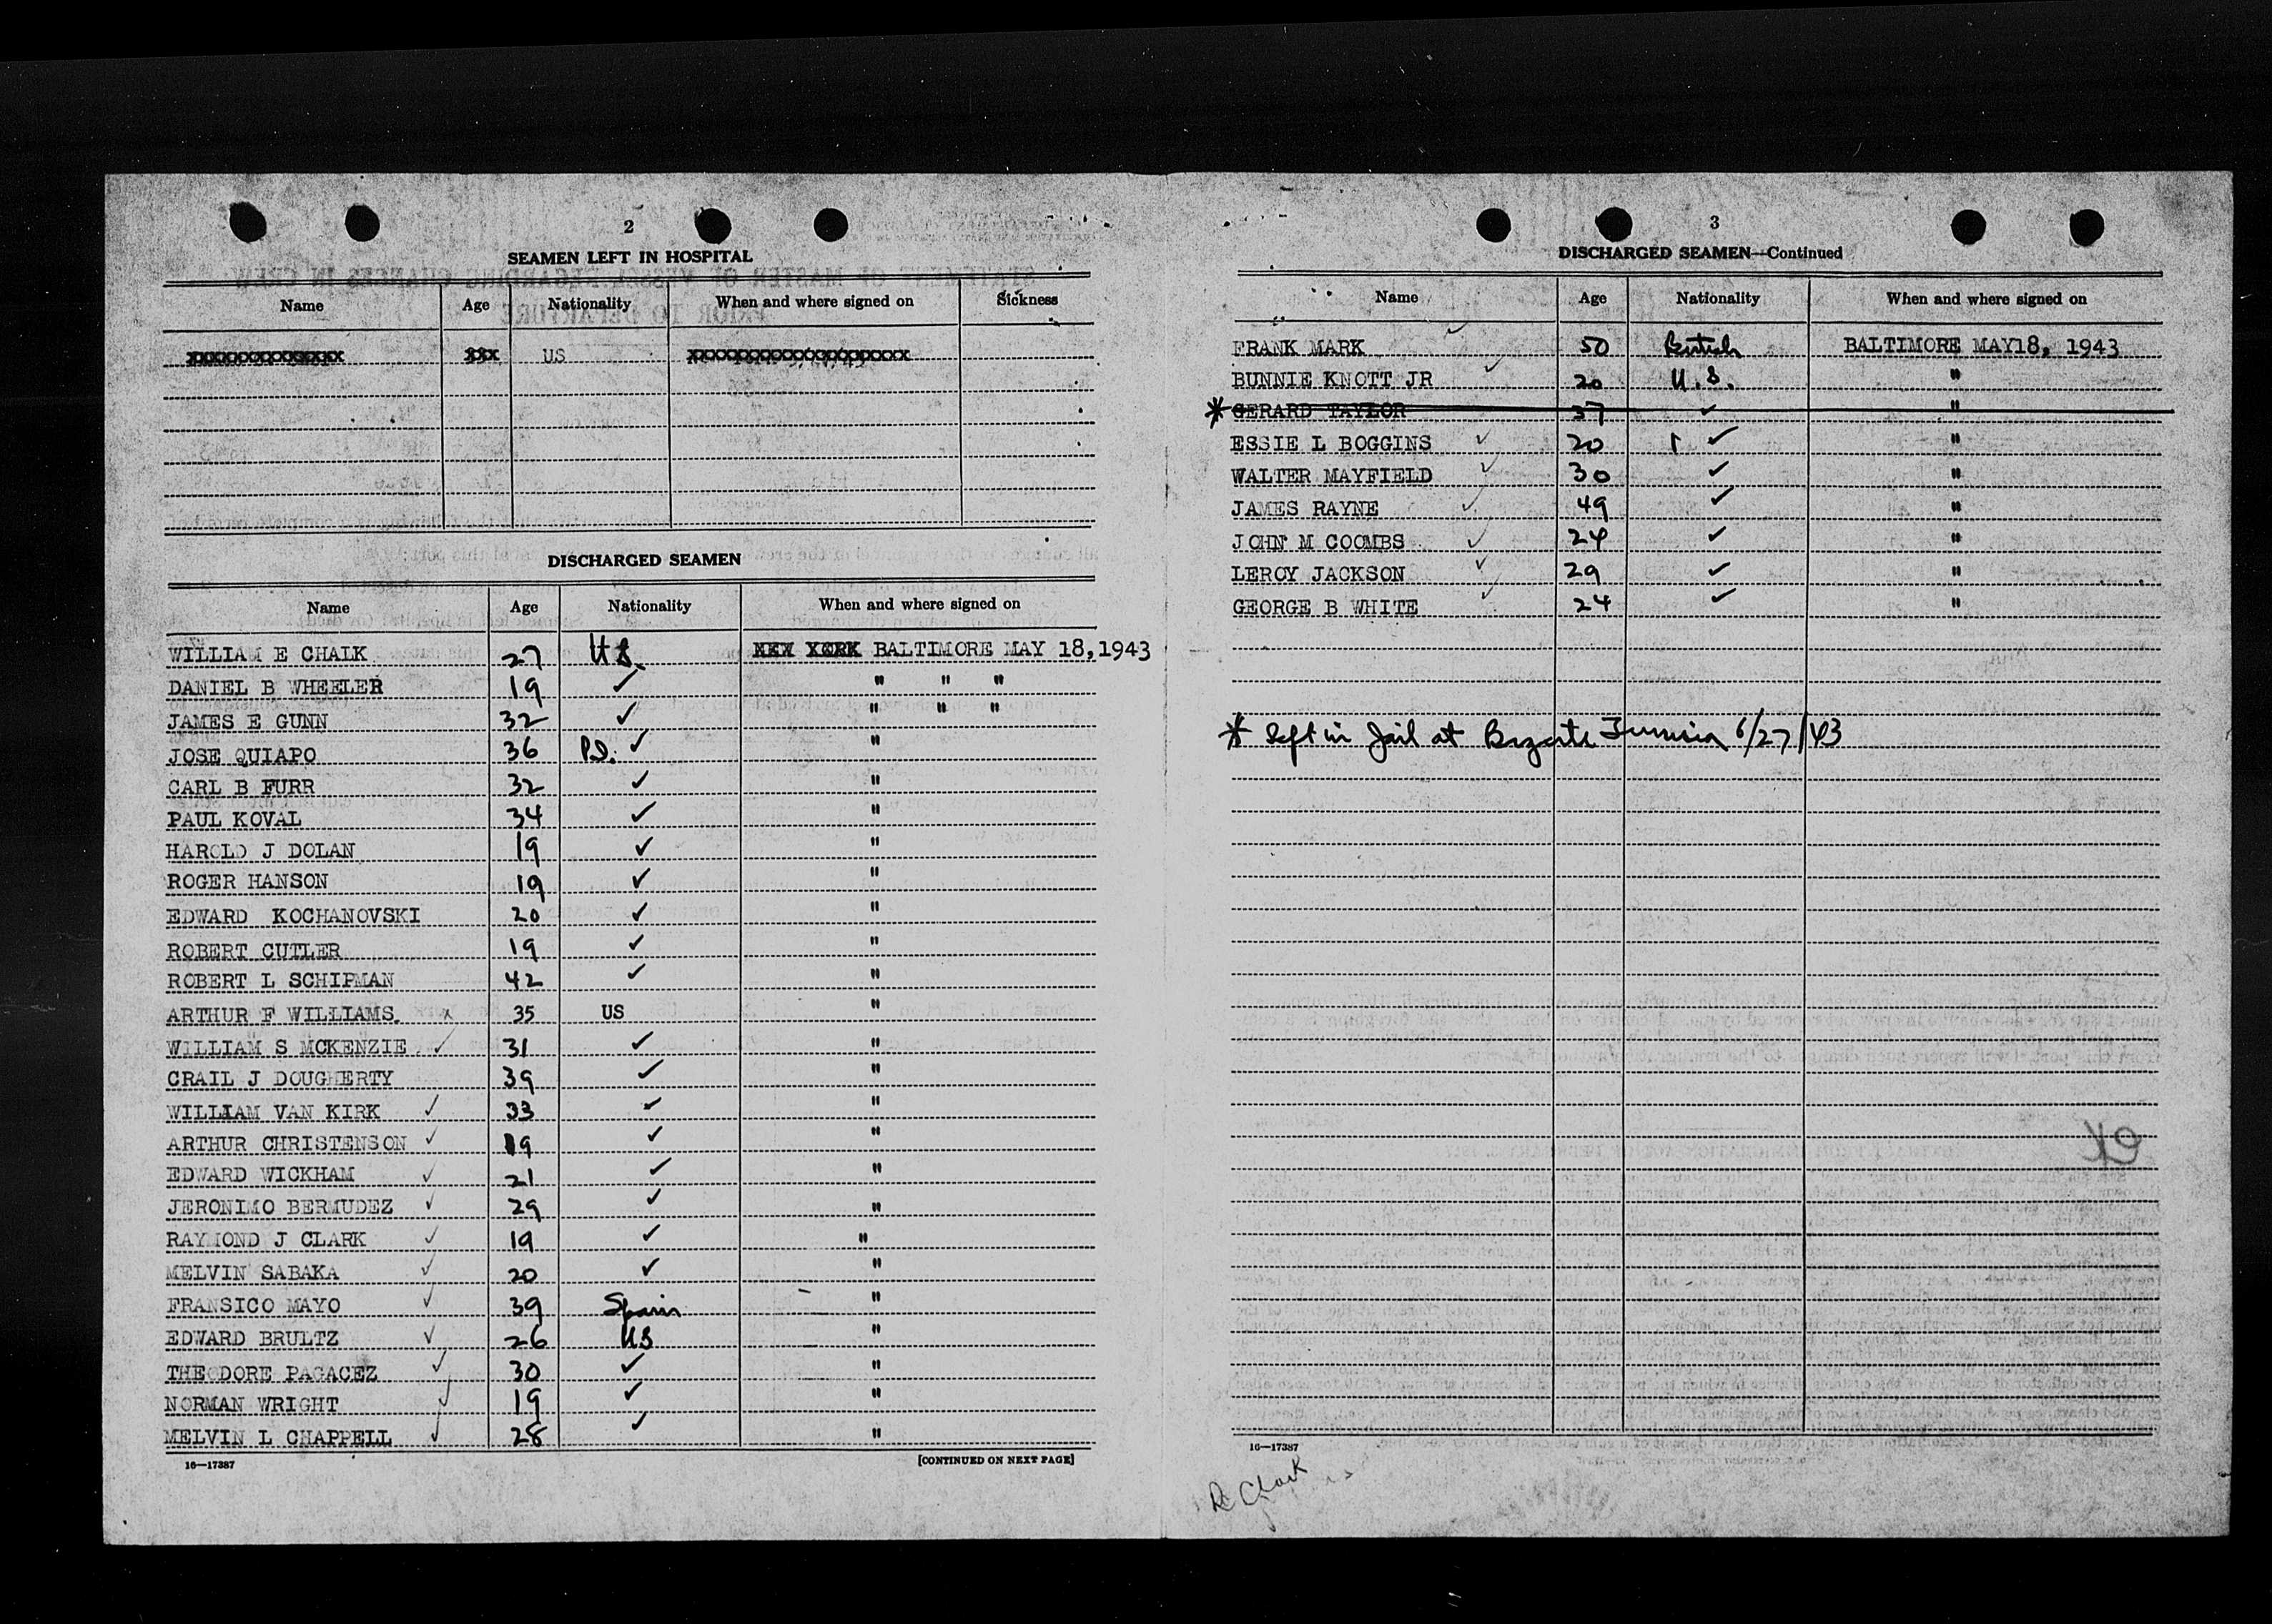 2
SEAMEN LEFT IN HOSPITAL
Name Age Nationality When and where signed on Sickness
US
DISCHARGED SEAMEN
Name Age Nationality When and where signed on
WILLIAM E CHALK 27 U.S. BALTIMORE MAY 18,1943
DANIEL B WHEELER 19 ✓ " " "
JAMES E GUNN 32 ✓ " " "
JOSE QUIAPO 36 P.I. ✓ "
CARL B FURR 32 ✓ "
PAUL KOVAL 34 ✓ "
HAROLD J DOLAN 19 ✓ "
ROGER HANSON 19 ✓ "
EDWARD KOCHANOVSKI 20 ✓ "
ROBERT CUTLER 19 ✓ "
ROBERT L SCHIPMAN 42 ✓ "
ARTHUR F WILLIAMS. x 35 US "
WILLIAM S MCKENZIE ✓ 31 ✓ "
CRAIL J DOUGHERTY 39 ✓ "
WILLIAM VAN KIRK ✓ 33 ✓ "
ARTHUR CHRISTENSON ✓ 19 ✓ "
EDWARD WICKHAM ✓ 21 ✓ "
JERONIMO BERMUDEZ ✓ 29 ✓ "
RAYMOND J CLARK ✓ 19 ✓ "
MELVIN SABAKA ✓ 20 ✓ "
FRANSICO MAYO ✓ 39 Spain "
EDWARD BRULTZ ✓ 26 US "
THEODORE PAGACEZ ✓ 30 ✓ "
NORMAN WRIGHT ✓ 19 ✓ "
MELVIN L CHAPPELL ✓ 28 ✓ "
16—17387 [CONTINUED ON NEXT PAGE]
3
DISCHARGED SEAMEN—Continued
Name Age Nationality When and where signed on
FRANK MARK ✓ 50 British BALTIMORE MAY18, 1943
BUNNIE KNOTT JR ✓ 20 U.S. "
* GERARD TAYLOR 37 ✓ "
ESSIE L BOGGINS ✓ 20 ✓ "
WALTER MAYFIELD ✓ 30 ✓ "
JAMES RAYNE ✓ 49 ✓ "
JOHN M COOMBS ✓ 24 ✓ "
LEROY JACKSON ✓ 29 ✓ "
GEORGE B WHITE ✓ 24 ✓ "
* Left in Jail at Bizerte Tunisia 6/27/43
16—17387
R Clark